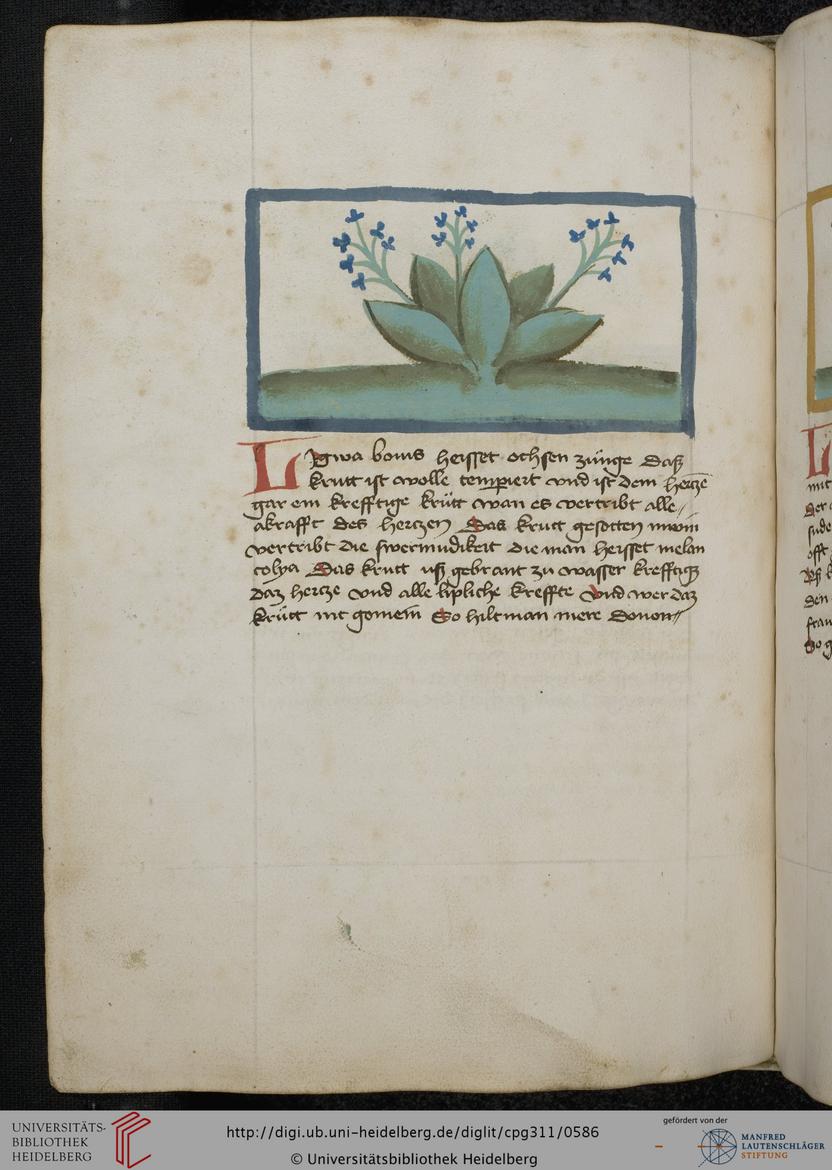 Ligwa bouis heisset ochsen zunge daß
krutt ist wolle tempiert vnd ist dem hercze
gar ein krefftige krutt wan es vertribt alle
akrafft des herczen Das krutt gesotten in win
vertribt die swermudikeit die man heisset melan
colya Das krutt uß gebrant zu wasser krefftiget
daz hercze vnd alle liplichе kreffte Vnd wer daz
krütt nit gemein So hilt man mere douon
UNIVERSITÄTS-
BIBLIOTHEK
HEIDELBERG
http://digi.ub.uni-heidelberg.de/diglit/cpg311/0586
© Universitätsbibliothek Heidelberg
gefördert von der
MANFRED
LAUTENSCHLÄGER
STIFTUNG